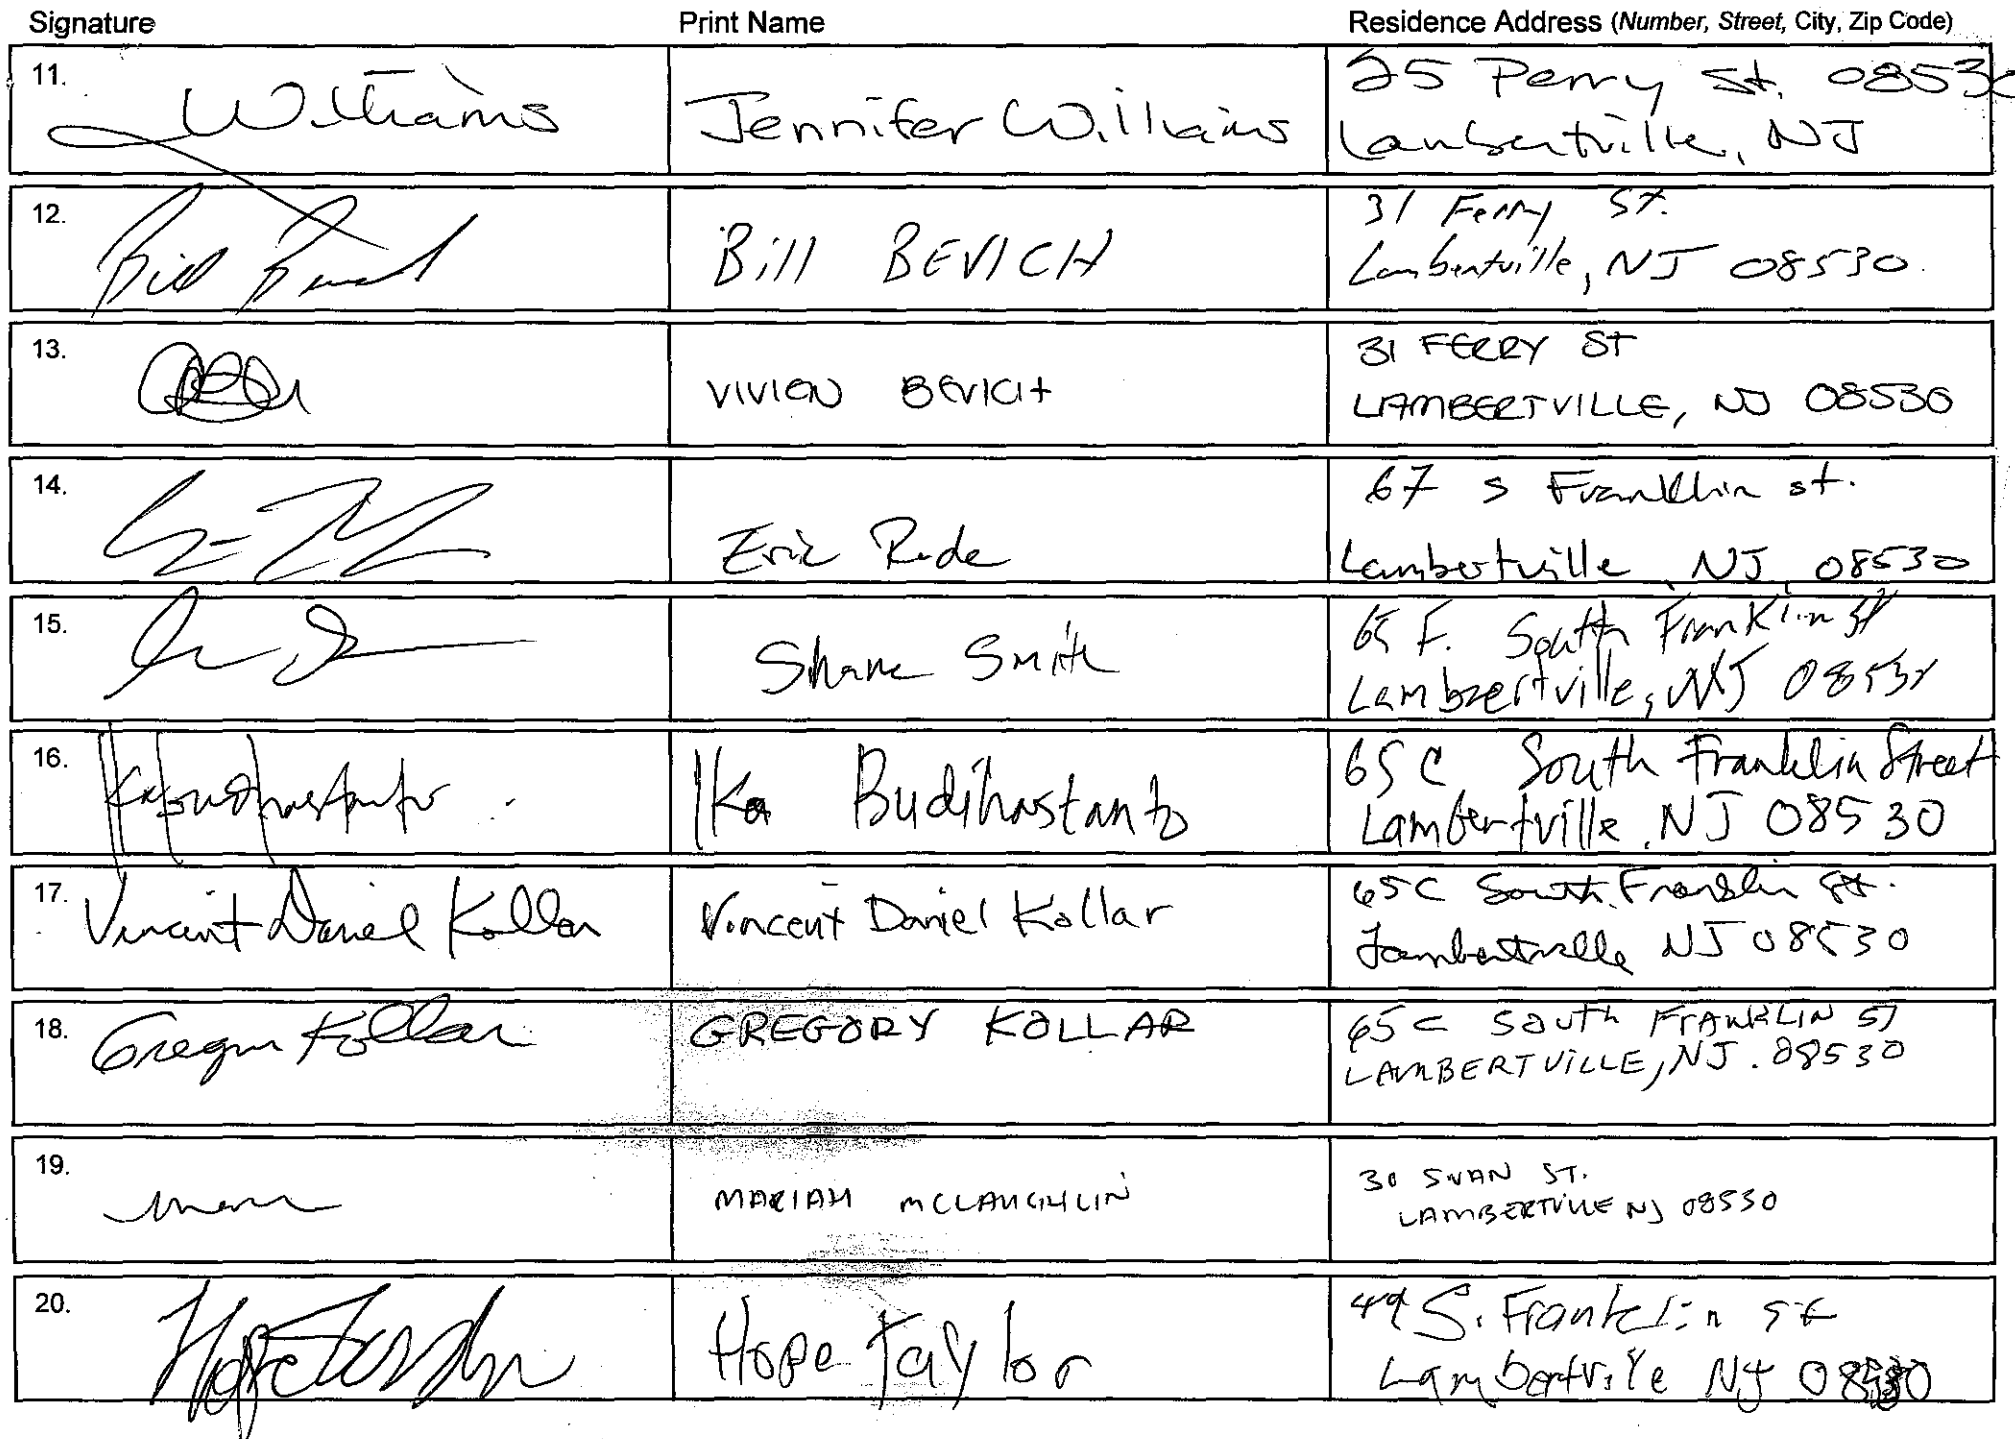 Signature Print Name Residence Address (Number, Street, City, Zip Code)
11. Williams Jennifer Williams 25 Perry St. 0853
Lambertville, NJ
12. Bill Bill BEVICH 31 Ferry St.
Lambertville, NJ 08530
13. VIVIEN BEVICH 31 FERRY ST
LAMBERTVILLE, NJ 08530
14. Eric Rode 67 S Franklin st.
Lambertville, NJ, 08530
15. Shane Smith 65 F. South Franklin St
Lambertville, NJ
16. Ika Budihastanto 65 C South Franklin Street
Lambertville, NJ 08530
17. Vincent Daniel Kollar Vincent Daniel Kollar 65C South Franklin St.
Lambertville NJ 08530
18. Gregory Kollar GREGORY KOLLAR 65 C South FRANKLIN ST
LAMBERTVILLE, NJ. 08530
19. MARIAH MCLAUGHLIN 30 SWAN ST.
LAMBERTVILLE NJ 08530
20. Hope Taylor Hope Taylor 49 S. Franklin St
Lambertville NJ 08530